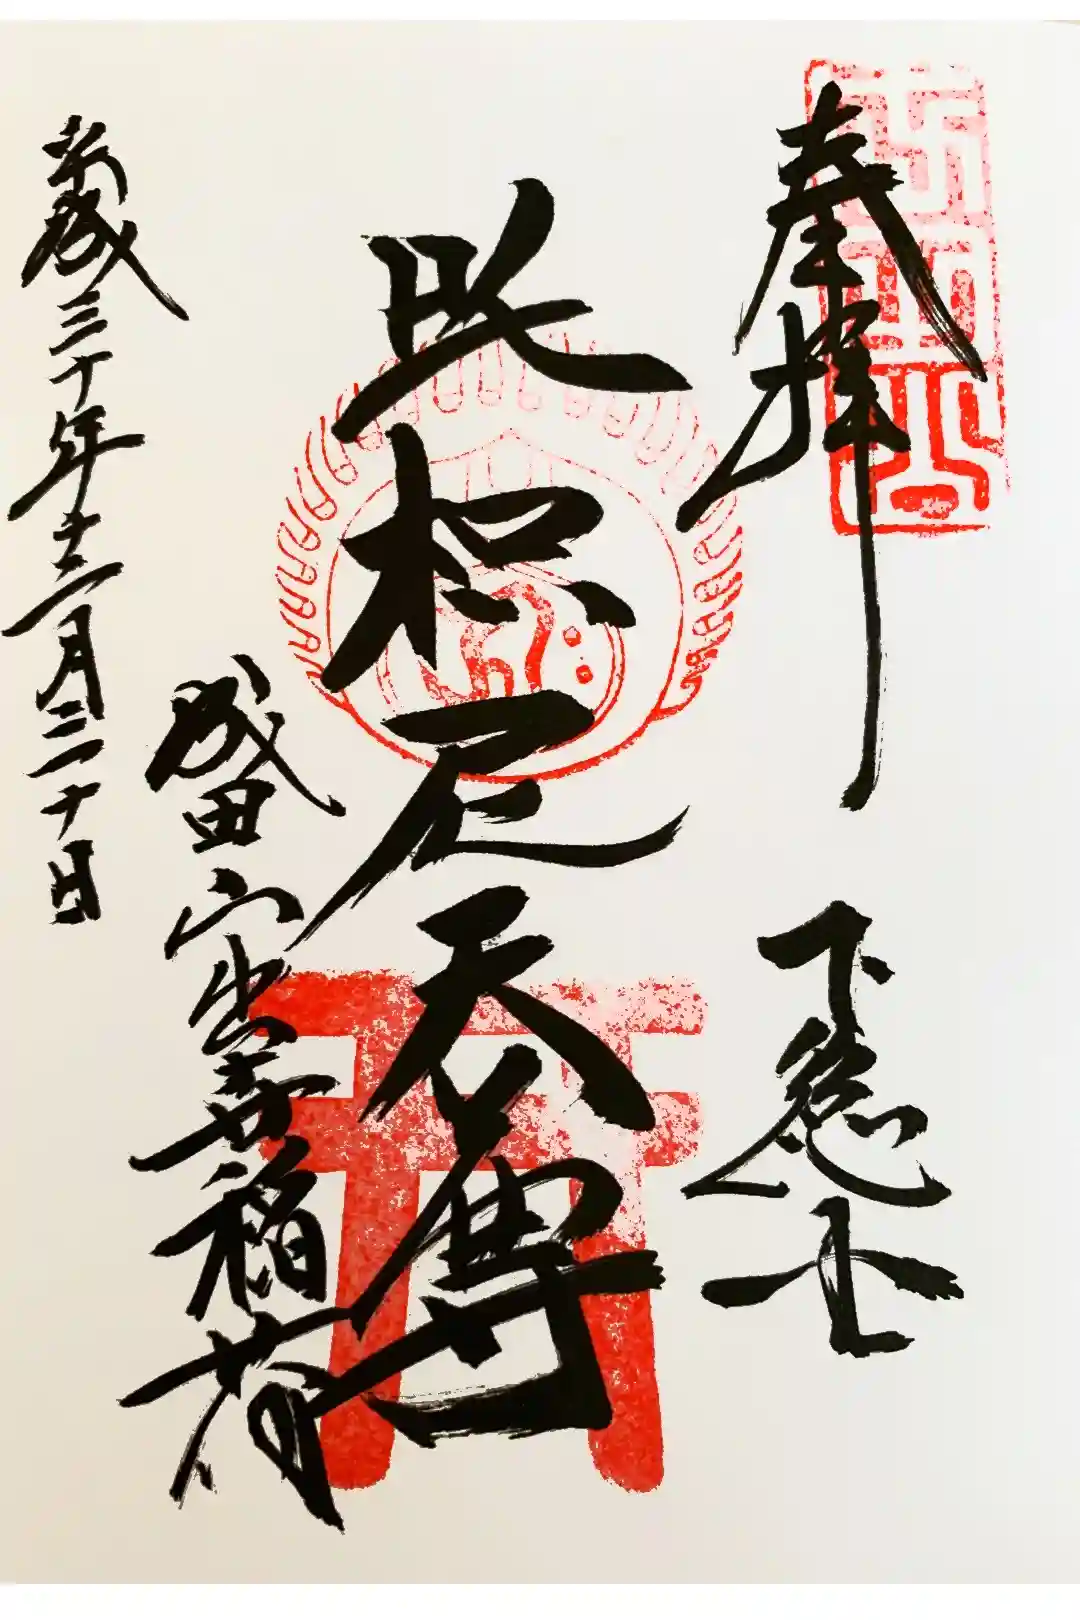 奉拝
下総
吒枳尼天尊
成田山出世稲荷
平成三十年十二月三十日